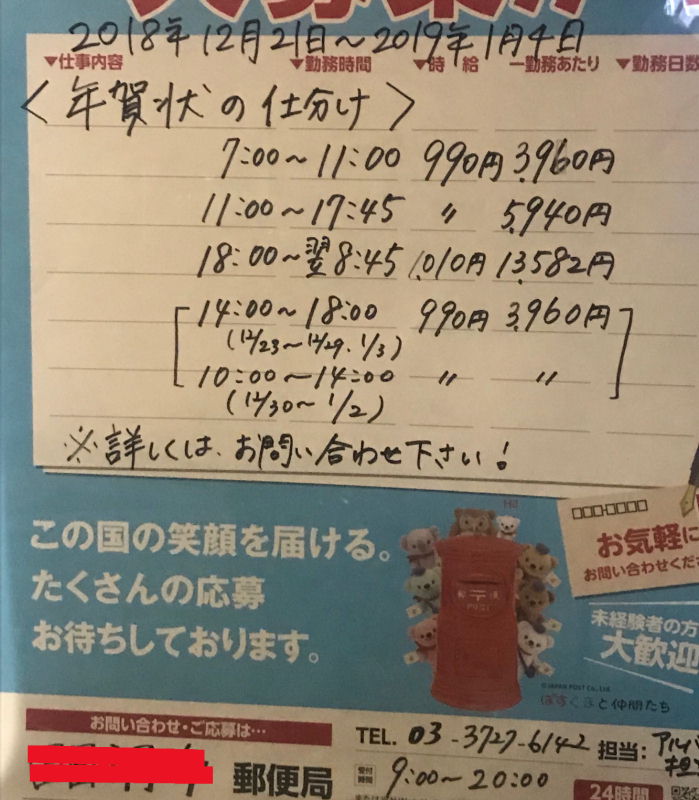 2018年12月21日～2019年1月4日
▼仕事内容 ▼勤務時間 ▼時 給 一勤務あたり ▼勤務日数
〈年賀状の仕分け〉
7:00～11:00 990円 3,960円
11:00～17:45 〃 5,940円
18:00～翌8:45 1,010円 13,582円
14:00～18:00 990円 3,960円
(12/23～12/29、1/3)
10:00～14:00 〃 〃
(12/30～1/2)
※詳しくは、お問い合わせ下さい!
この国の笑顔を届ける。
たくさんの応募
お待ちしております。
郵〒便
POST
お気軽に
お問い合わせくださ
未経験者の方
大歓迎
©JAPAN POST Co., Ltd.
ぽすくまと仲間たち
お問い合わせ・ご応募は…
郵便局
TEL. 03-3727-6142 担当: アルバ
受付時間 9:00～20:00
24時間